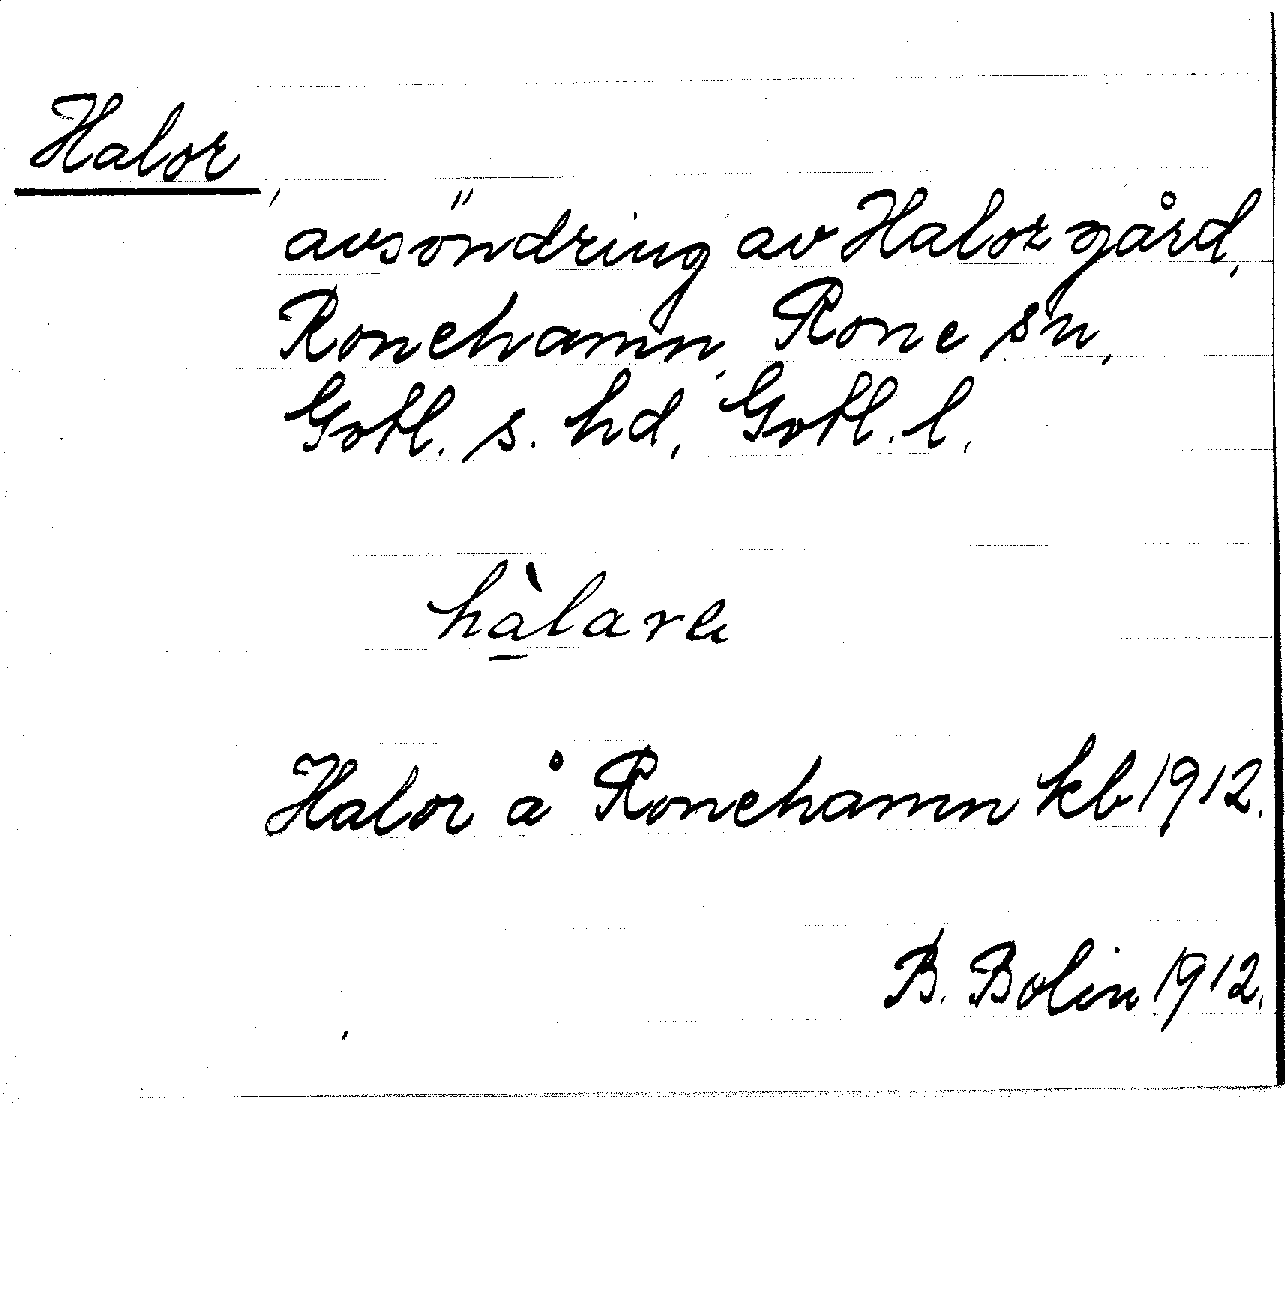 Halor,
avsöndring av Halor gård,
Ronehamn, Rone sn,
Gotl. s. hd, Gotl. l.
hàlara
Halor å Ronehamn kb 1912.
B. Bolin 1912.